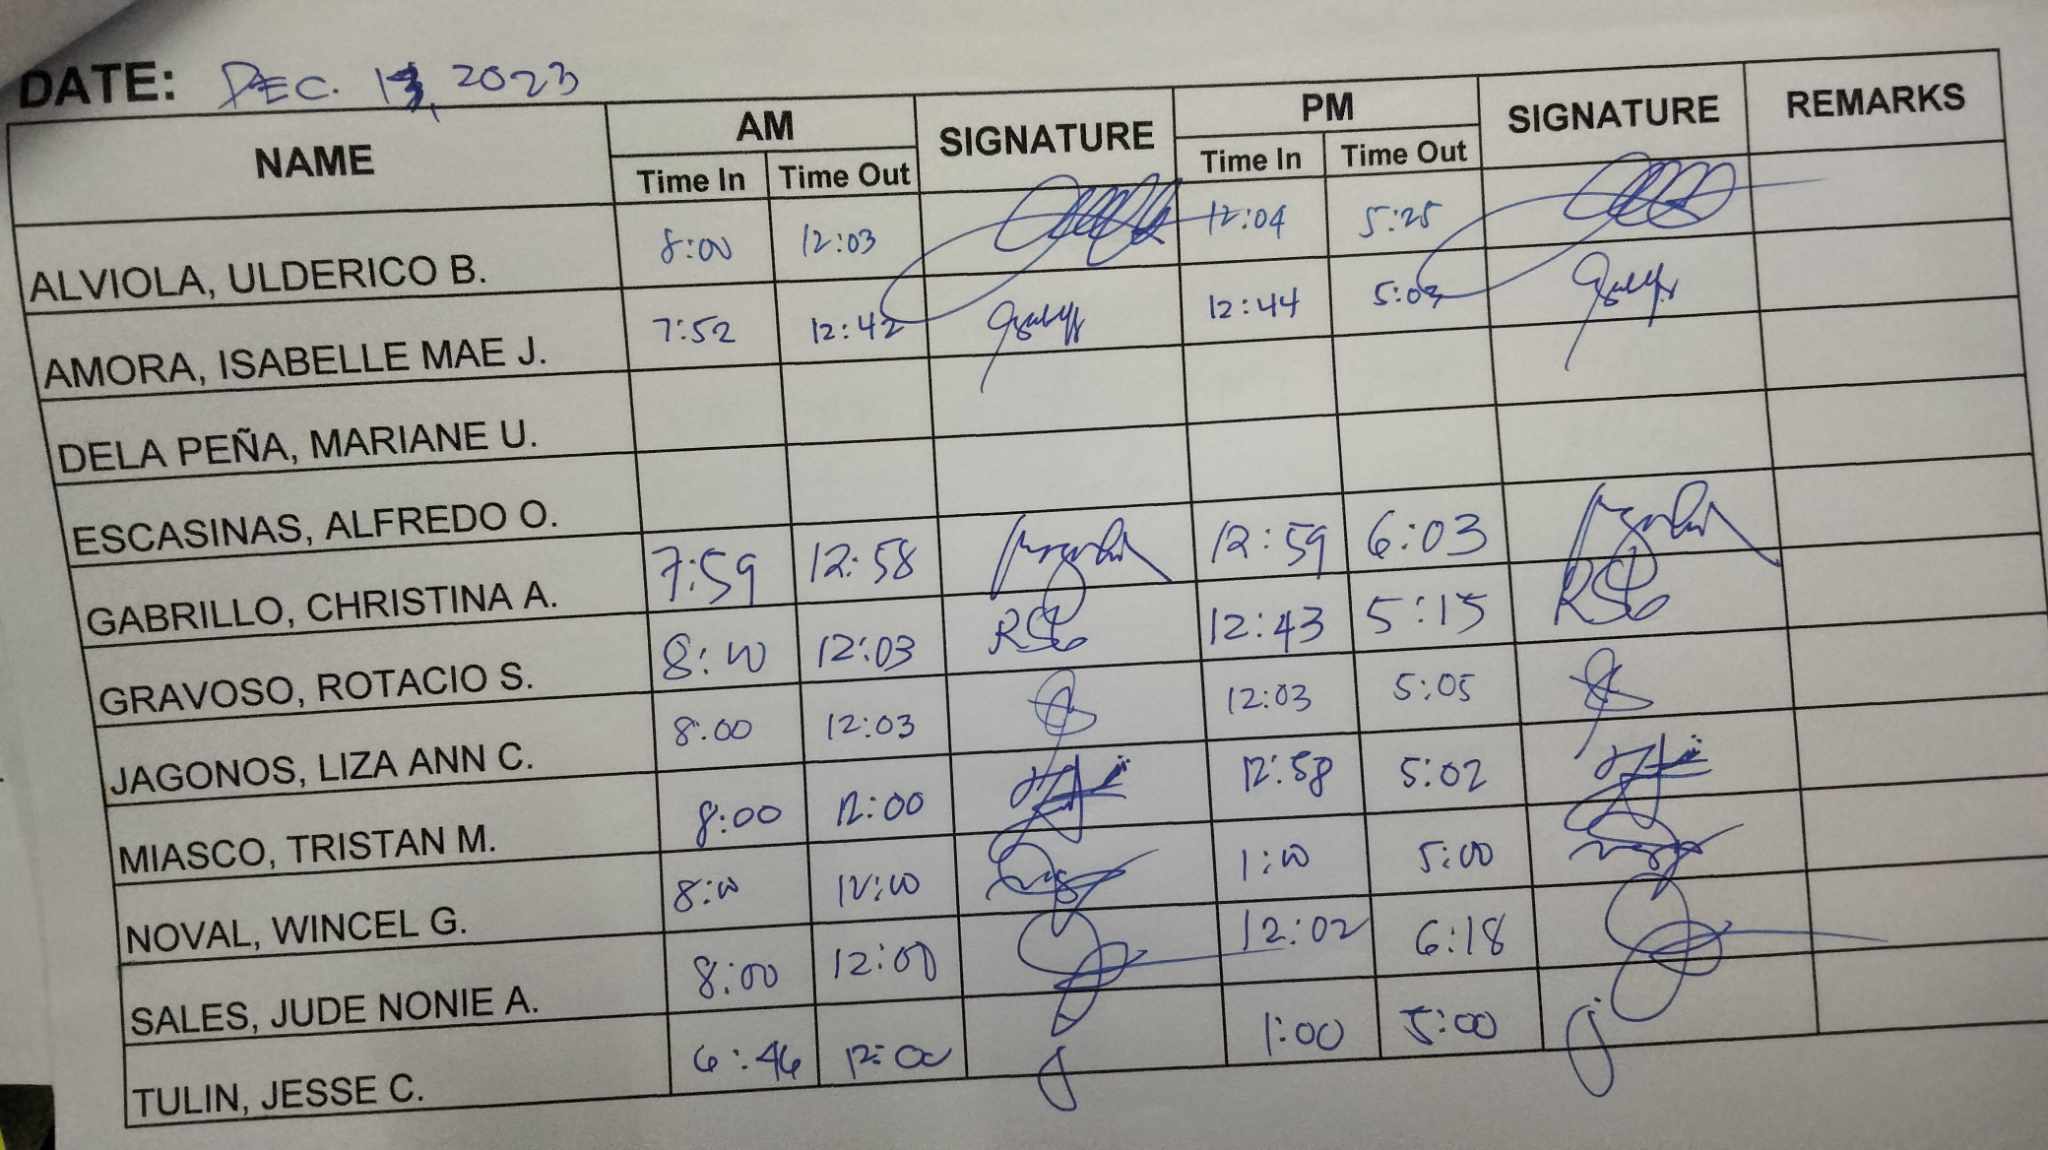 DATE: DEC. 13, 2023
NAME AM SIGNATURE PM SIGNATURE REMARKS
Time In Time Out Time In Time Out
ALVIOLA, ULDERICO B. 8:00 12:03 12:04 5:25
AMORA, ISABELLE MAE J. 7:52 12:42 12:44 5:03
DELA PEÑA, MARIANE U.
ESCASINAS, ALFREDO O.
GABRILLO, CHRISTINA A. 7:59 12:58 12:59 6:03
GRAVOSO, ROTACIO S. 8:00 12:03 RSG 12:43 5:15 RSG
JAGONOS, LIZA ANN C. 8:00 12:03 12:03 5:05
MIASCO, TRISTAN M. 8:00 12:00 12:58 5:02
NOVAL, WINCEL G. 8:00 12:00 1:00 5:00
SALES, JUDE NONIE A. 8:00 12:01 12:02 6:18
TULIN, JESSE C. 6:46 12:00 1:00 5:00